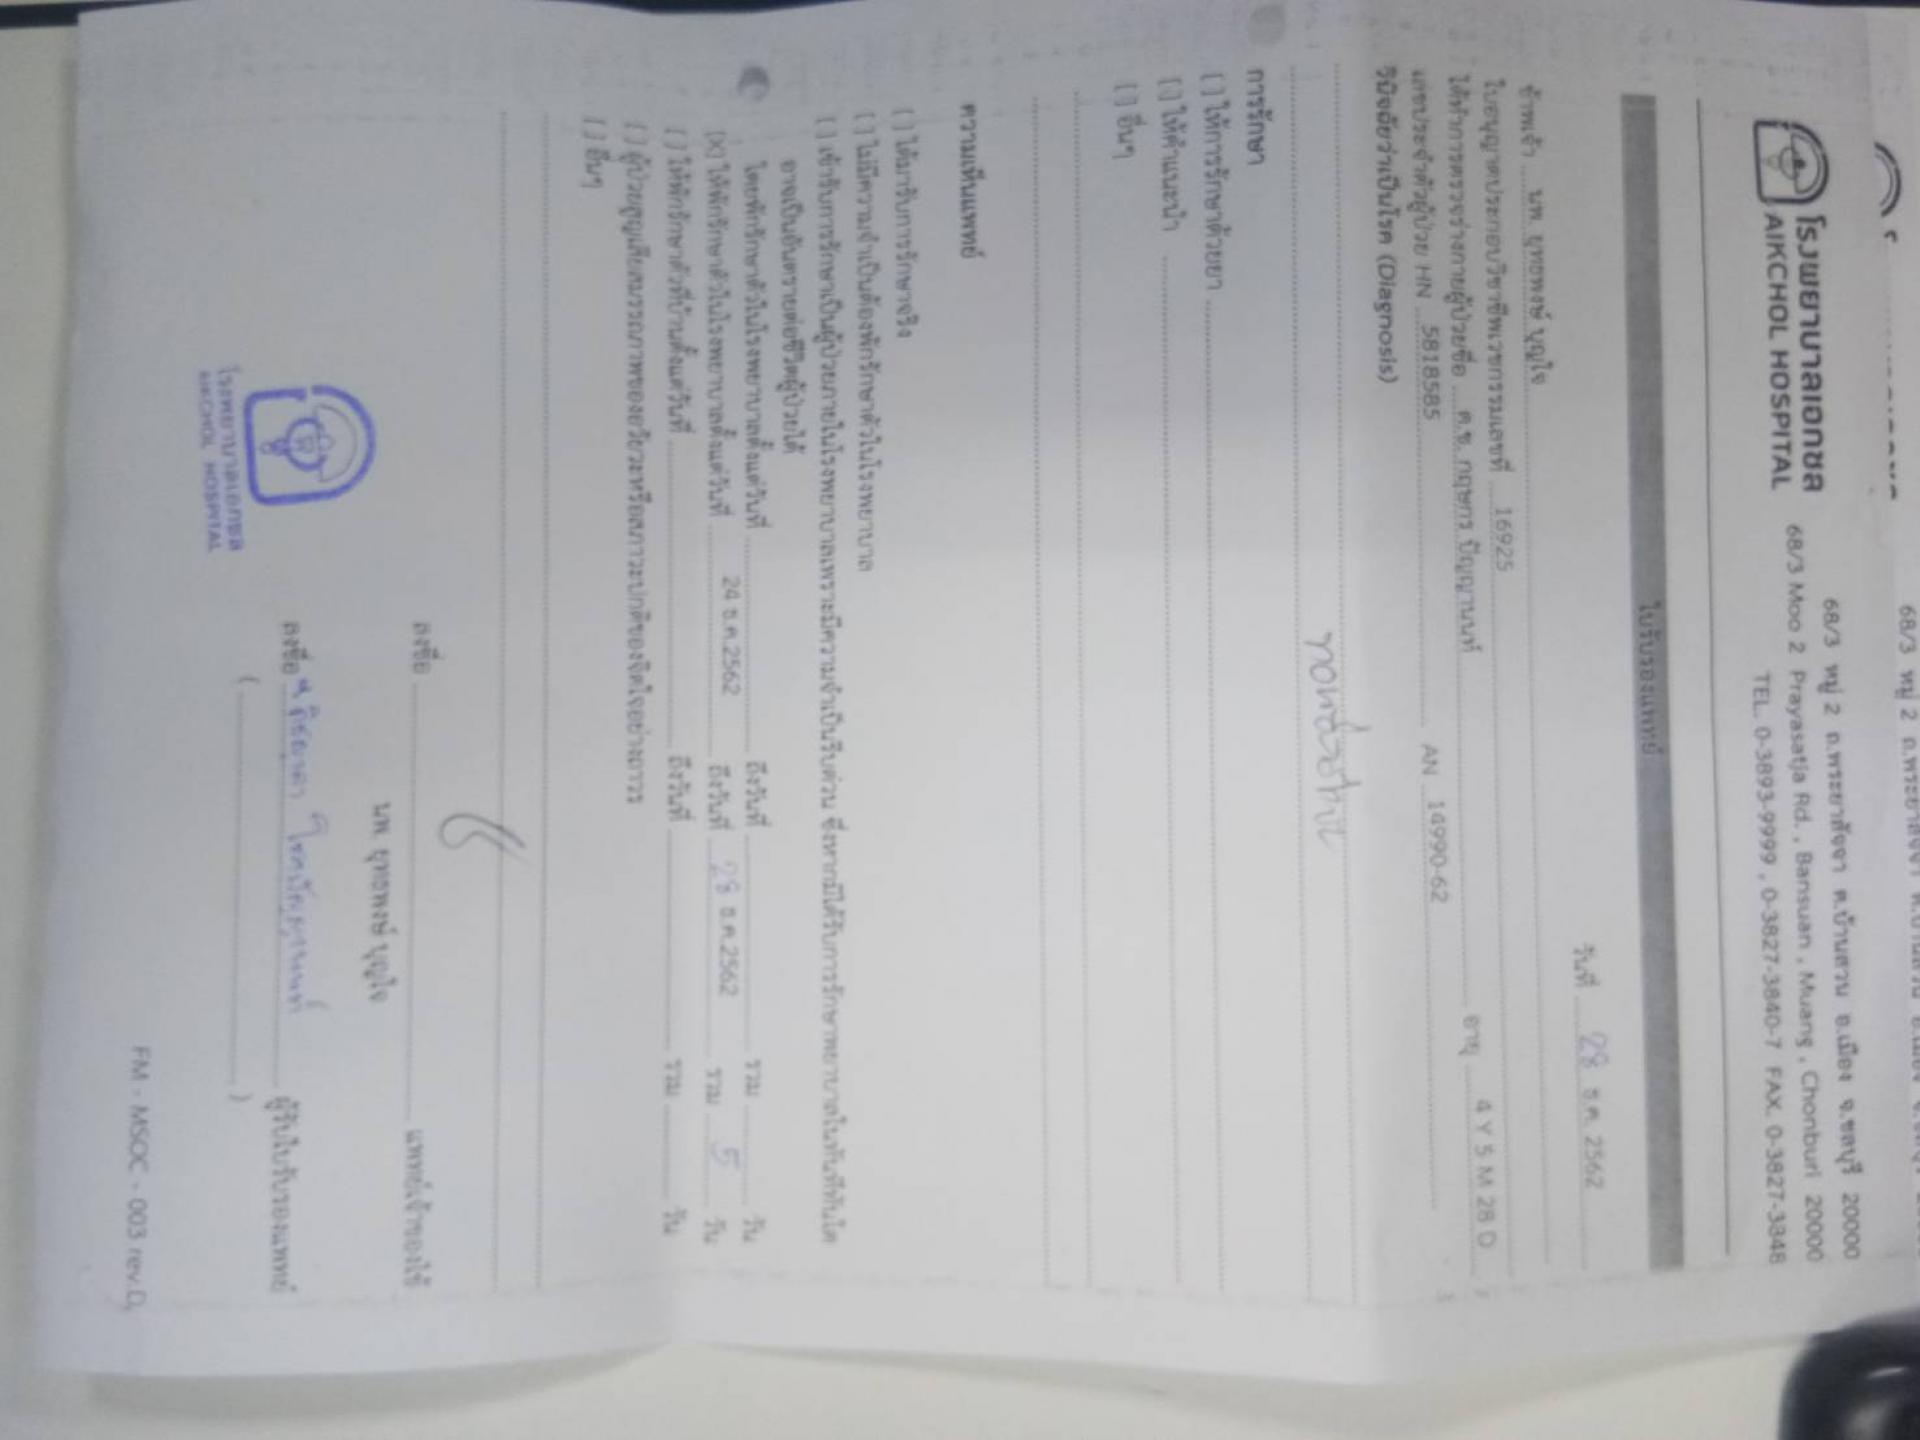 โรงพยาบาลเอกชล
AIKCHOL HOSPITAL
68/3 หมู่ 2 ถ.พระยาสัจจา ต.บ้านสวน อ.เมือง จ.ชลบุรี 20000
68/3 Moo 2 Prayasatja Rd., Bansuan, Muang, Chonburi 20000
TEL. 0-3893-9999, 0-3827-3840-7 FAX. 0-3827-3348
ใบรับรองแพทย์
วันที่ 28 ธ.ค. 2562
ข้าพเจ้า นพ. ยุทธพงษ์ บุญใจ
ใบอนุญาตประกอบวิชาชีพเวชกรรมเลขที่ 16925
ได้ทำการตรวจร่างกายผู้ป่วยชื่อ ด.ช. กฤษกร ปัญญานนท์ อายุ 4 Y 5 M 28 D
เลขประจำตัวผู้ป่วย HN 5818585 AN 14990-62
วินิจฉัยว่าเป็นโรค (Diagnosis)
การรักษา
[ ] ให้การรักษาด้วยยา
[ ] ให้คำแนะนำ
[ ] อื่นๆ
ความเห็นแพทย์
( ) ได้มารับการรักษาจริง
( ) ไม่มีความจำเป็นต้องพักรักษาตัวในโรงพยาบาล
( ) เข้ารับการรักษาเป็นผู้ป่วยภายในโรงพยาบาลเพราะมีความจำเป็นรีบด่วน ซึ่งหากมิได้รับการรักษาพยาบาลในทันทีทันใด
อาจเป็นอันตรายต่อชีวิตผู้ป่วยได้
โดยพักรักษาตัวในโรงพยาบาลตั้งแต่วันที่ ถึงวันที่ รวม วัน
(X) ให้พักรักษาตัวในโรงพยาบาลตั้งแต่วันที่ 24 ธ.ค.2562 ถึงวันที่ 28 ธ.ค.2562 รวม 5 วัน
( ) ให้พักรักษาตัวที่บ้านตั้งแต่วันที่ ถึงวันที่ รวม วัน
( ) ผู้ป่วยสูญเสียสมรรถภาพของอวัยวะหรือสภาวะปกติของจิตใจอย่างถาวร
[ ] อื่นๆ
ลงชื่อ แพทย์เจ้าของไข้
นพ. ยุทธพงษ์ บุญใจ
ลงชื่อ ผู้รับใบรับรองแพทย์
( )
โรงพยาบาลเอกชล
AIKCHOL HOSPITAL
FM - MSOC - 003 rev.D,